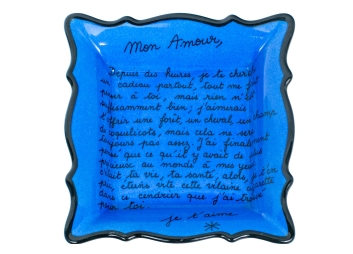 Mon Amour,
Depuis des heures, je te cherche
un cadeau partout, tout me fait
penser à toi, mais rien n'est
suffisamment bien; j'aimerais
t'offrir une forêt, un cheval, un champ
de coquelicots, mais cela ne sera
toujours pas assez. J'ai finalement
pensé que ce qu'il y avait de plus
précieux au monde à mes yeux
c'était ta vie, ta santé, alors, je t'en
prie, éteins vite cette vilaine cigarette
dans ce cendrier que j'ai trouvé
pour toi.
je t'aime